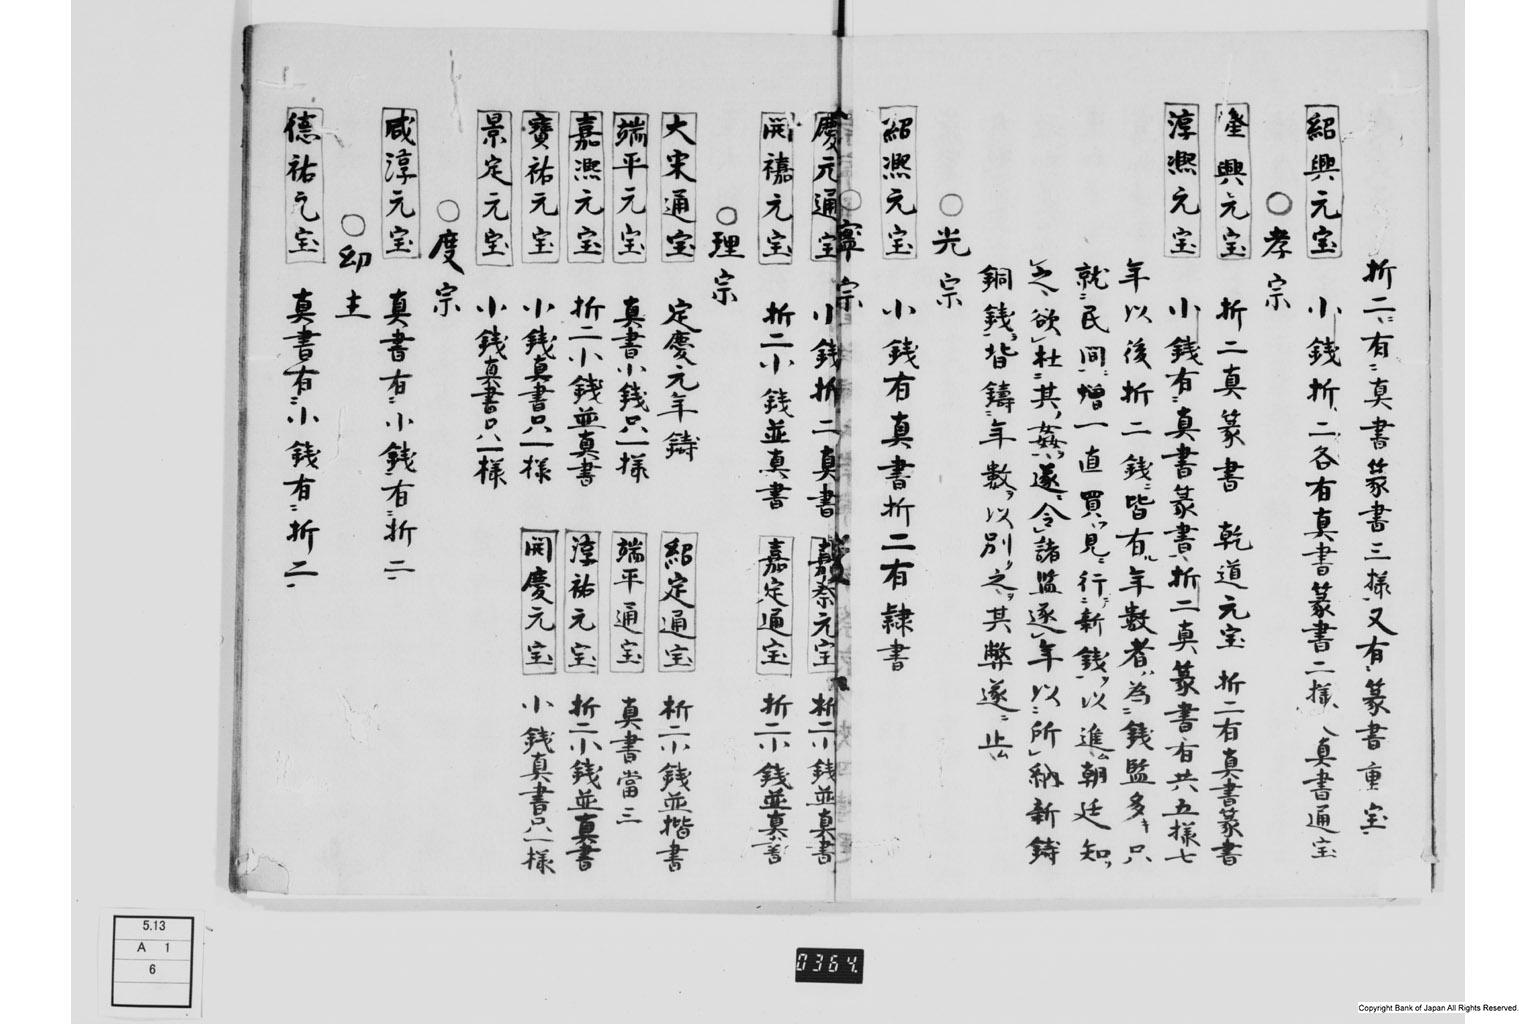 折二ニ有ニ真書篆書三様又有篆書重宝
紹興元宝 小銭折二各有真書篆書二様 真書通宝
○孝宗
隆興元宝 折二真篆書 乾道元宝 折二有真書篆書
淳熈元宝 小銭有ニ真書篆書折二真篆書有共五様七
年以後折二銭皆有年数者為ニ銭監多キ只
就ニ民間ニ増一直買見行新銭以進朝廷知
之欲杜ニ其姦遂ニ令諸監逐年以ニ所納新鋳
銅銭皆鋳ニ年数以別之其弊遂ニ止
○光宗
紹熈元宝 小銭有真書折二有隷書
○寧宗
慶元通宝 小銭折二真書 嘉泰元宝 折二小銭並真書
開禧元宝 折二小銭並真書 嘉定通宝 折二小銭並真書
○理宗
大宋通宝 定慶元年鋳 紹定通宝 折二小銭並楷書
端平元宝 真書小銭只一様 端平通宝 真書當三
嘉熈元宝 折二小銭並真書 淳祐元宝 折二小銭並真書
寶祐元宝 小銭真書只一様 開慶元宝 小銭真書只一様
景定元宝 小銭真書只一様
○度宗
咸淳元宝 真書有ニ小銭有ニ折二
○幼主
德祐元宝 真書有ニ小銭有ニ折二
5.13
A 1
6
0364
Copyright Bank of Japan All Rights Reserved.